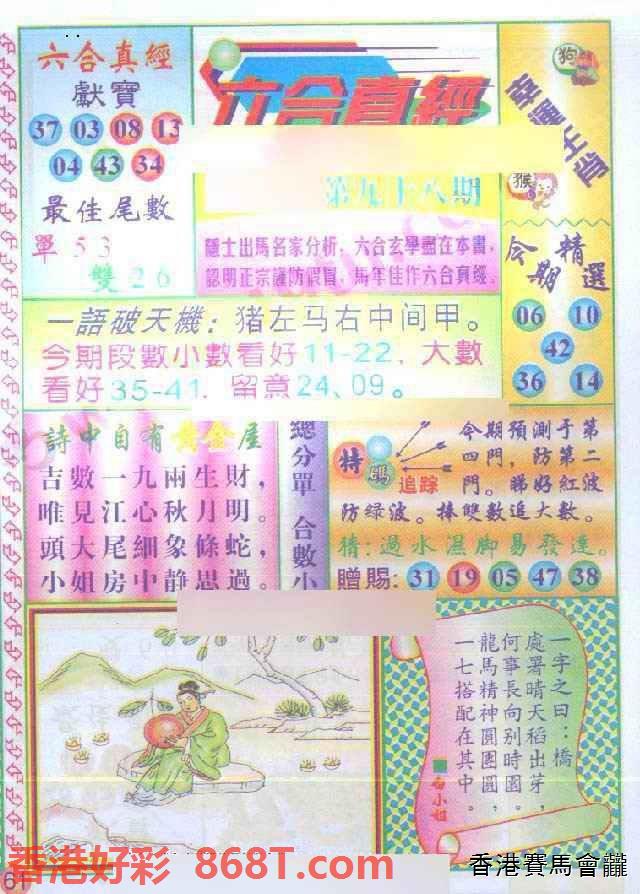 六合真經
獻寶
37 03 08 13
04 43 34
最佳尾數
單 5 3
雙 2 6
六合真經
第九十八期
隱士出馬名家分析，六合玄學盡在本書，
認明正宗謹防假冒，馬年佳作六合真經。
狗
幸運生肖
猴
今期精選
06 10
42
36 14
一語破天機：猪左马右中间甲。
今期段數小數看好11-22，大數
看好35-41，留意24、09。
詩中自有黃金屋
吉數一九兩生財，
唯見江心秋月明。
頭大尾細象條蛇，
小姐房中静思過。
總分單 合數小
特碼
追踪
今期預測于第
四門，防第二
門。睇好紅波
防绿波。捧雙數追大數。
猜：過水濕脚易發達。
贈賜：31 19 05 47 38
一字之曰：橋
處署晴天稻出芽，
何事長向别時圆。
龍馬精神圓團圓，
一七搭配在其中。
■白小姐
香港好彩 868T.com
香港賽馬會
61